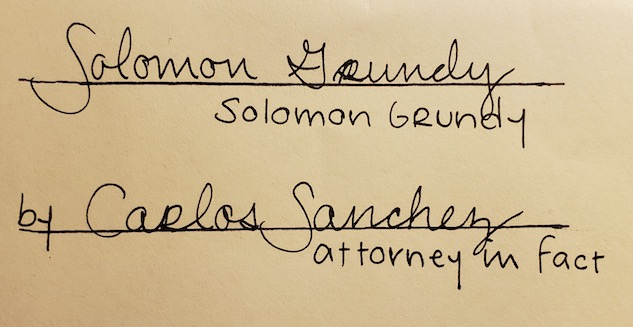 Solomon Grundy
Solomon Grundy
by Carlos Sanchez
attorney in fact